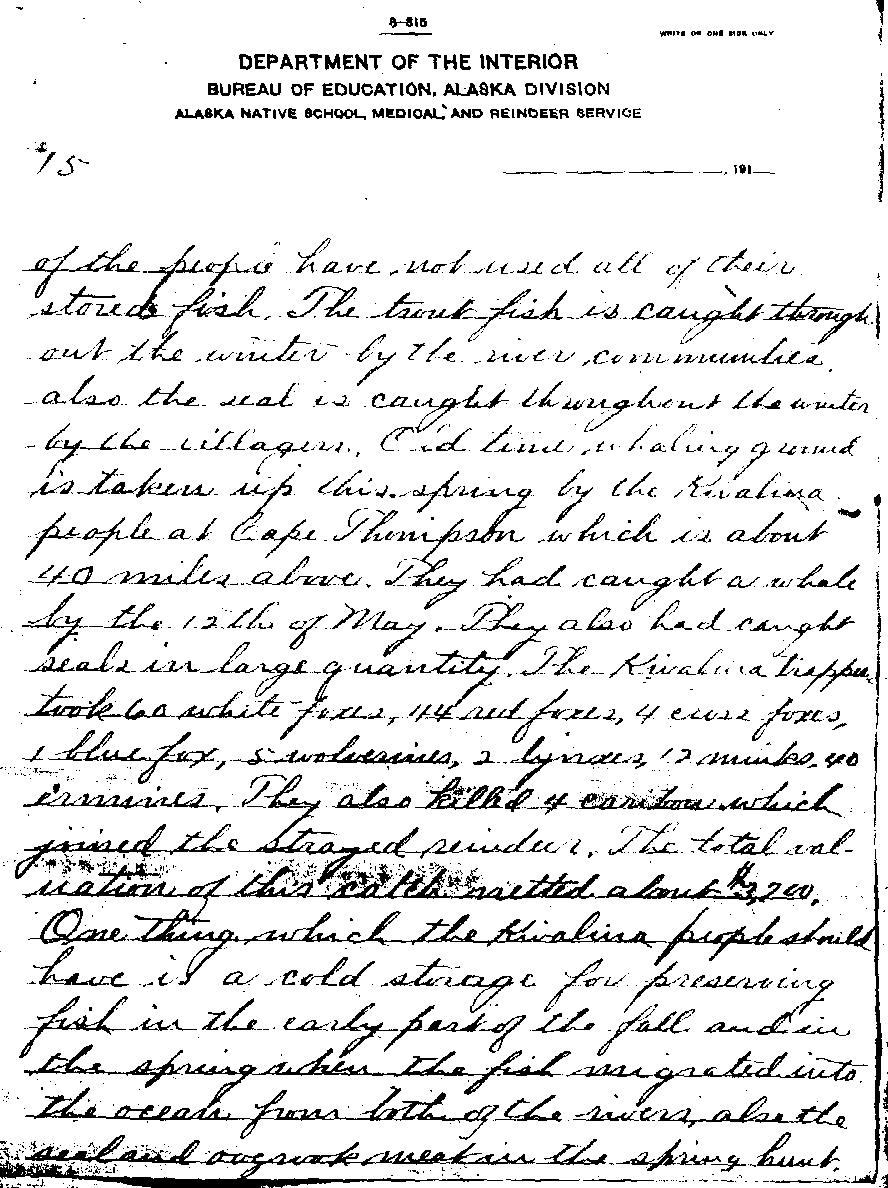 8-515
WRITE ON ONE SIDE ONLY
DEPARTMENT OF THE INTERIOR
BUREAU OF EDUCATION, ALASKA DIVISION
ALASKA NATIVE SCHOOL, MEDICAL, AND REINDEER SERVICE
15
, 191
of the people have not used all of their
stored fish. The trout fish is caught through
out the winter by the river communities.
also the seal is caught throughout the winter
by the villagers. Old time whaling ground
is taken up this spring by the Kivalina
people at Cape Thompson which is about
40 miles above. They had caught a whale
by the 12th of May. They also had caught
seals in large quantity. The Kivalina trappers
took 60 white foxes, 44 red foxes, 4 cross foxes,
1 blue fox, 5 wolverines, 2 lynxes, 12 minks, 40
ermines. They also killed 4 caribou which
joined the strayed reindeer. The total val-
uation of this catch netted about $3,200.
One thing which the Kivalina people should
have is a cold storage for preserving
fish in the early part of the fall and in
the spring when the fish migrated into
the ocean from both of the rivers, also the
seal and oogrook meat in the spring hunt.